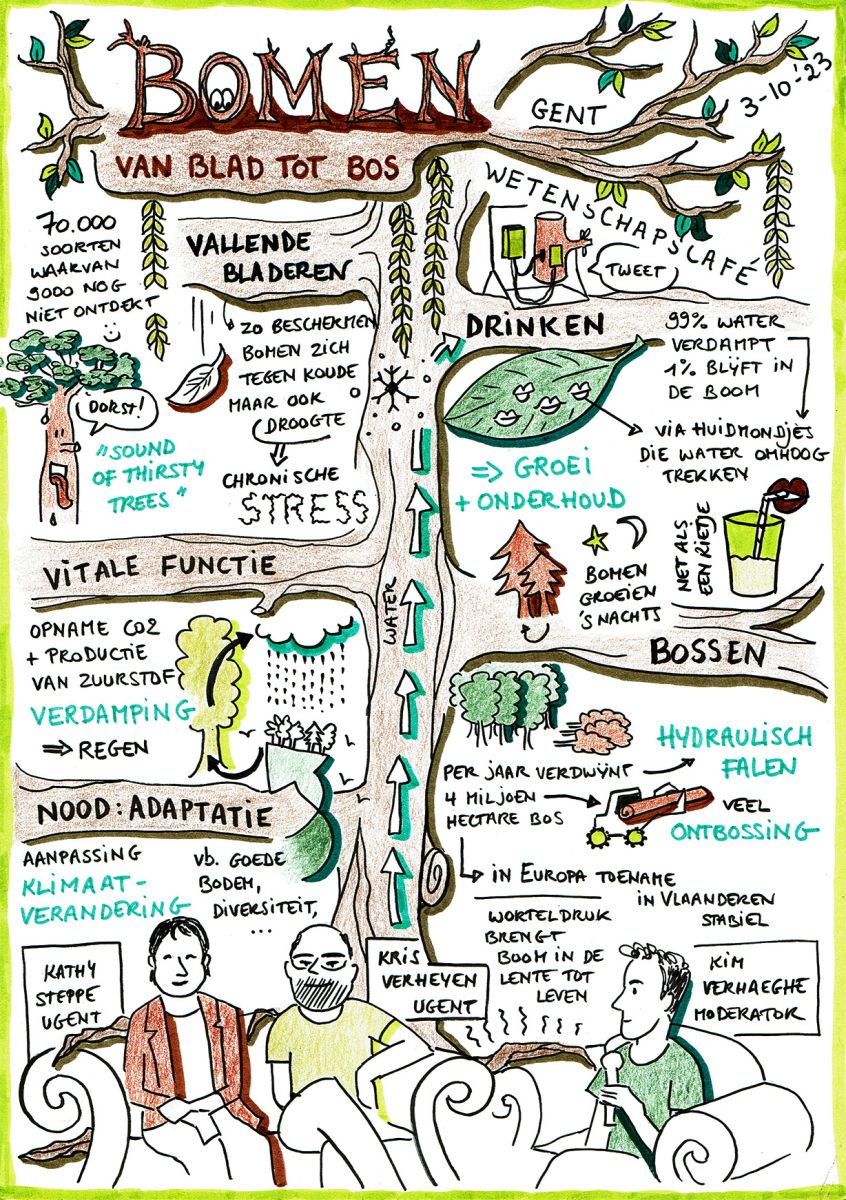 BOMEN
VAN BLAD TOT BOS
GENT
3-10-'23
WETENSCHAPSCAFÉ
TWEET
70.000
SOORTEN
WAARVAN
9000 NOG
NIET ONTDEKT
VALLENDE
BLADEREN
ZO BESCHERMEN
BOMEN ZICH
TEGEN KOUDE
MAAR OOK
DROOGTE
CHRONISCHE
STRESS
DORST!
"SOUND
OF THIRSTY
TREES"
DRINKEN
99% WATER
VERDAMPT
1% BLIJFT IN
DE BOOM
VIA HUIDMONDJES
DIE WATER OMHOOG
TREKKEN
=> GROEI
+ ONDERHOUD
NET ALS
EEN RIETJE
BOMEN
GROEIEN
'S NACHTS
VITALE FUNCTIE
OPNAME CO2
+ PRODUCTIE
VAN ZUURSTOF
VERDAMPING
=> REGEN
WATER
BOSSEN
PER JAAR VERDWIJNT
4 MILJOEN
HECTARE BOS
HYDRAULISCH
FALEN
VEEL
ONTBOSSING
IN EUROPA TOENAME
IN VLAANDEREN
STABIEL
NOOD: ADAPTATIE
AANPASSING
KLIMAAT-
VERANDERING
vb. GOEDE
BODEM,
DIVERSITEIT,
...
WORTELDRUK
BRENGT
BOOM IN DE
LENTE TOT
LEVEN
KATHY
STEPPE
UGENT
KRIS
VERHEYEN
UGENT
KIM
VERHAEGHE
MODERATOR